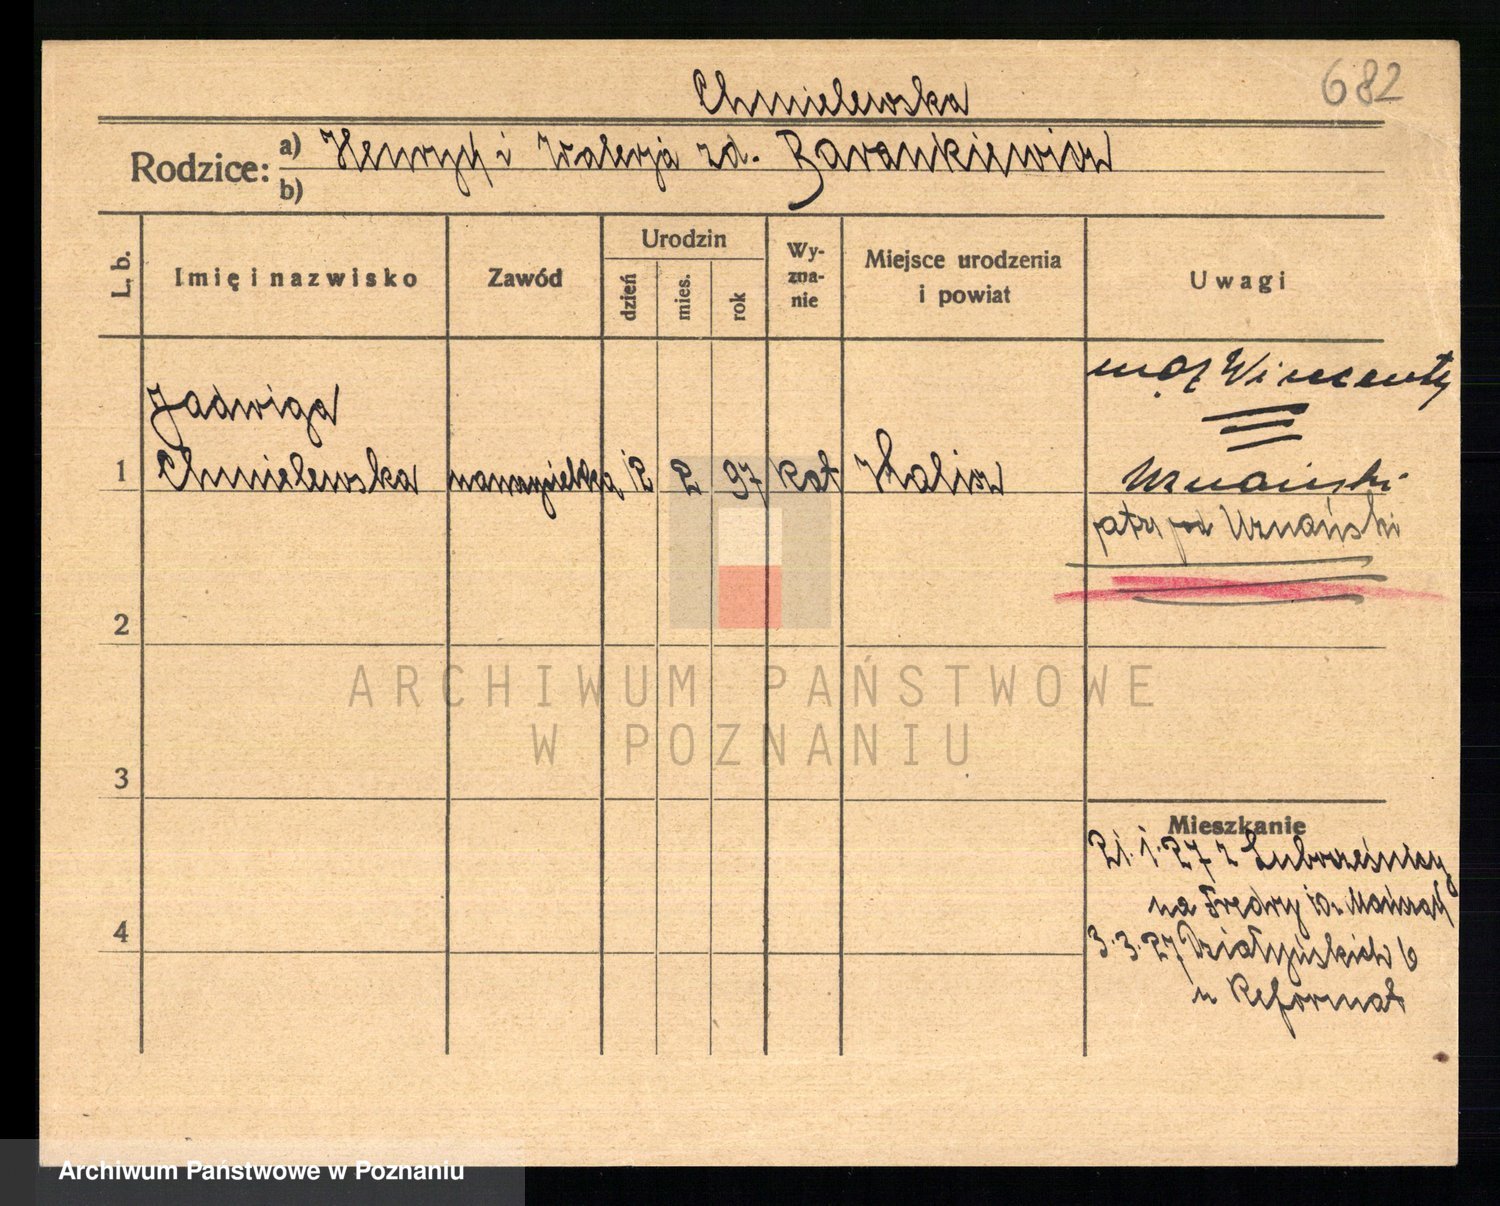 682
Chmielewska
Rodzice: a) Henryk i Walerja zd. Barankiewicz
b)
L. b. Imię i nazwisko Zawód Urodzin dzień mies. rok Wy-zna-nie Miejsce urodzenia i powiat Uwagi
mąż Wincenty
Jadwiga
1 Chmielewska nauczycielka 12 2 97 kat Kalisz Uznański
patrz pod Uznański
2
ARCHIWUM PAŃSTWOWE
W POZNANIU
3
Mieszkanie
21.1.27 z
na Fredry 10
4
3.3.27 Działyńskich 6
u Reformat
Archiwum Państwowe w Poznaniu